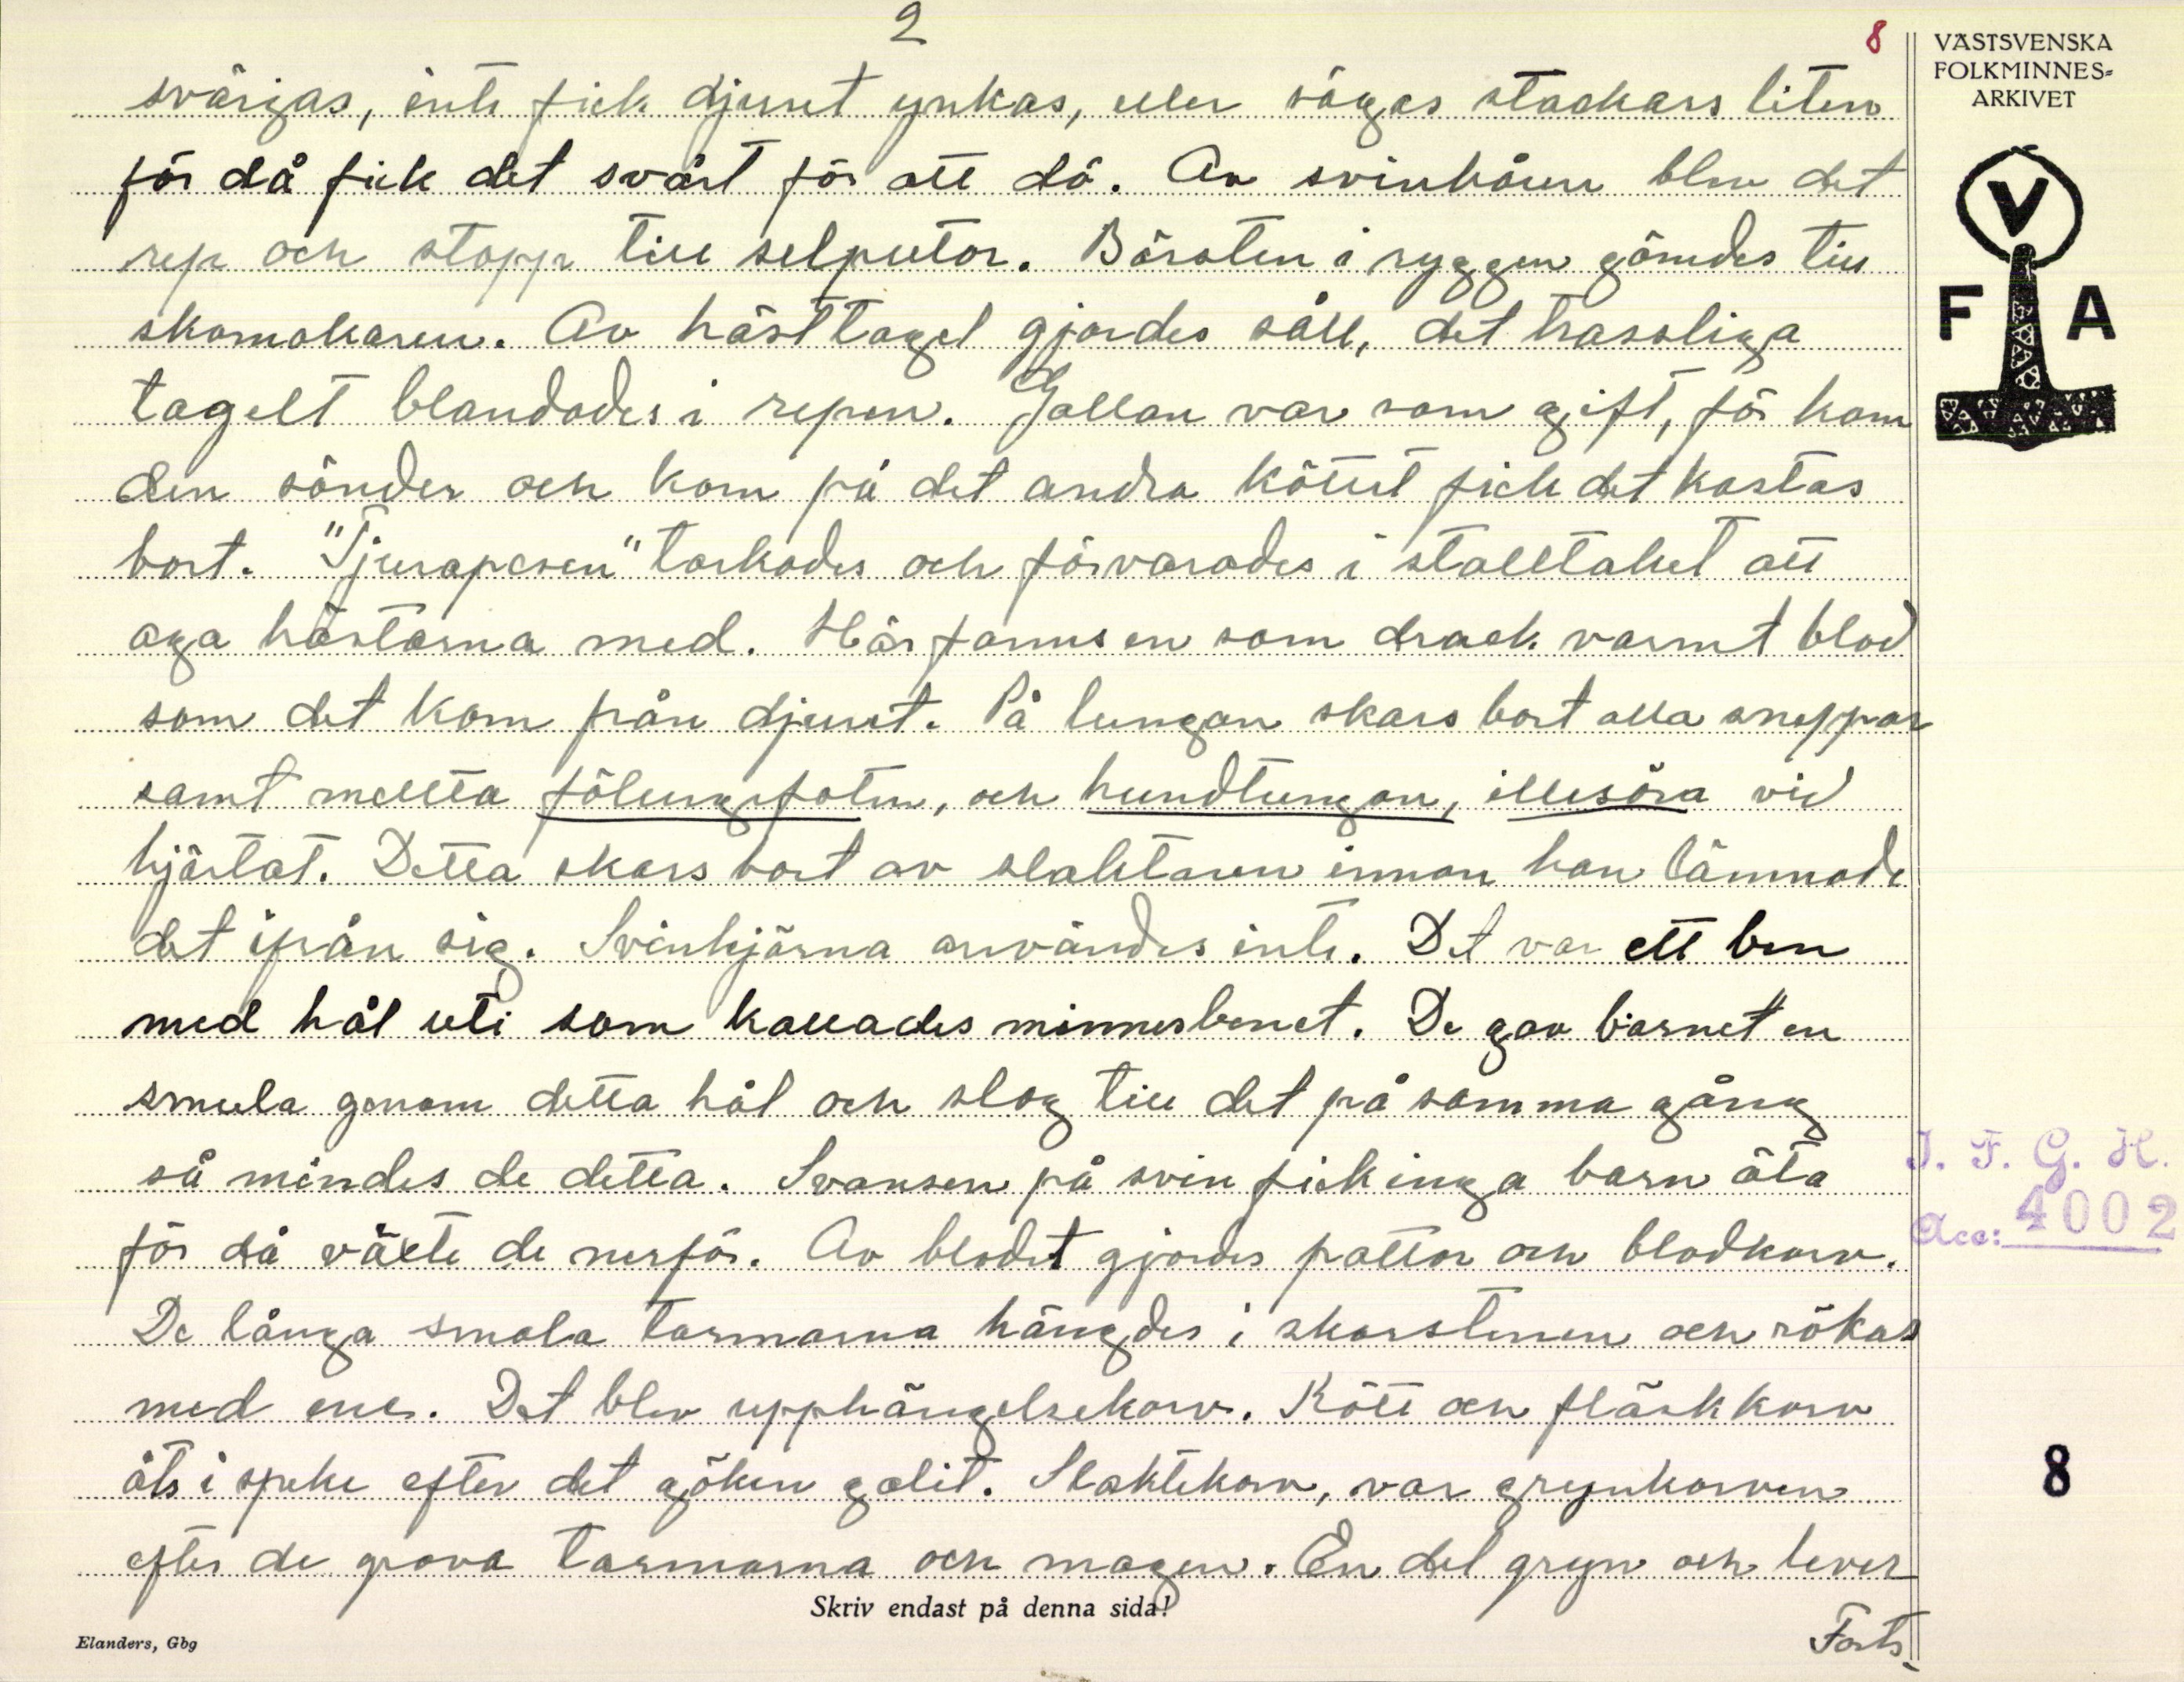 2
8
VÄSTSVENSKA
FOLKMINNES-
ARKIVET
V
F A
svärjas, inte fick djuret ynkas, eller sägas stackars liten
för då fick det svårt för att dö. Av svinhåren blev det
rep och stopp till selputor. Börsten i ryggen gömdes till
skomakaren. Av hästtagel gjordes såll, det trassliga
tagelt blandades i repen. Gallan var som gift, för kom
den sönder och kom på det andra köttet fick det kastas
bort. "Tjurapesen" torkades och förvarades i stalltaket att
aga hästarna med. Här fanns en som drack varmt blod
som det kom från djuret. På lungan skars bort alla sneppar
samt mellta fölungafoten, och hundtungan, illesöra vid
hjärtat. Detta skars bort av slaktaren innan han lämnade
det ifrån sig. Svinhjärna användes inte. Det var ett ben
med hål uti som kallades minnesbenet. De gav barnet en
smula genom detta hål och slog till det på samma gång
så mindes de detta. Svansen på svin fick inga barn äta
för då växte de nerför. Av blodet gjordes paltor och blodkorv.
De långa smala tarmarna hängdes i skorstenen och rökas
med ene. Det blev upphängelsekorv. Kött och fläskkorv
åts i speke efter det göken galit. Slaktekorv, var grynkorven
efter de grova tarmarna och magen. En del gryn och lever
Forts.
I. F. G. H.
Acc: 4002
8
Skriv endast på denna sida!
Elanders, Gbg